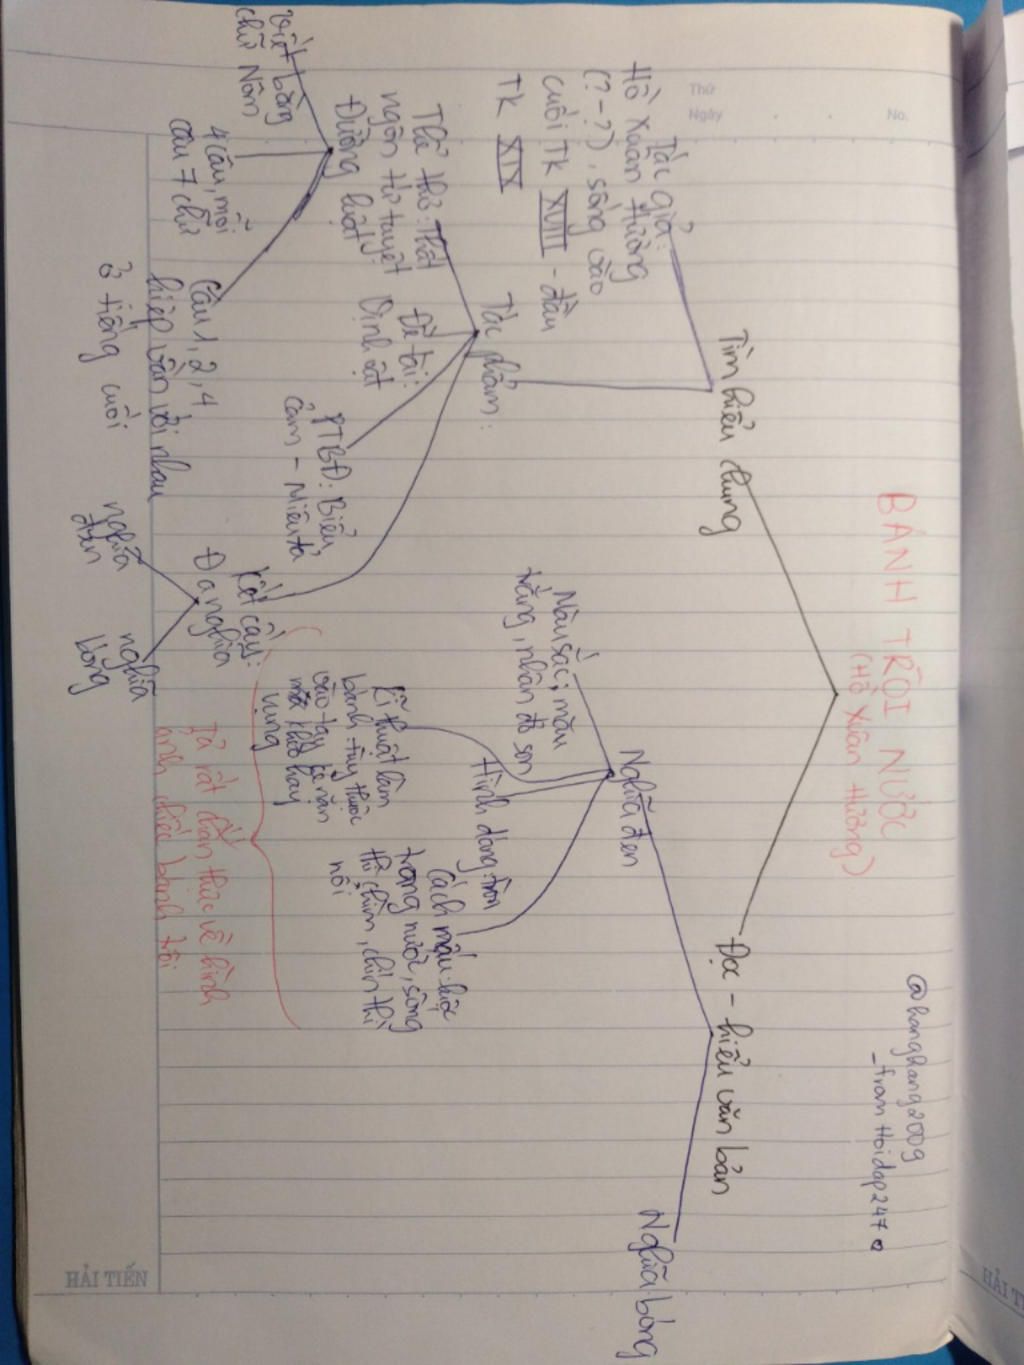 BÁNH TRÔI NƯỚC
(Hồ Xuân Hương)
@hanghang2009
_from Hoidap247
Thứ
Ngày
No.
Tìm hiểu chung
Tác giả:
Hồ Xuân Hương
(?-?), sống vào
cuối TK XVIII - đầu
TK XIX
Tác phẩm:
Thể thơ: Thất
ngôn tứ tuyệt
Đường luật
Viết bằng
chữ Nôm
4 câu, mỗi
câu 7 chữ
Câu 1, 2, 4
hiệp vần với nhau
ở tiếng cuối
Đề tài:
Vịnh vật
PTBĐ: Biểu
cảm - Miêu tả
Kết cấu:
Đa nghĩa
nghĩa
đen
nghĩa
bóng
Đọc - hiểu văn bản
Nghĩa đen
Màu sắc: màu
trắng, nhân đỏ son
Hình dáng: tròn
Kĩ thuật làm
bánh - tùy thuộc
vào tay kẻ nặn
mà khéo hay
vụng
Cách nấu: luộc
trong nước, sống
thì chìm, chín thì
nổi
Tả rất chân thực về hình
ảnh chiếc bánh trôi
Nghĩa bóng
HẢI TIẾN
HẢI TI